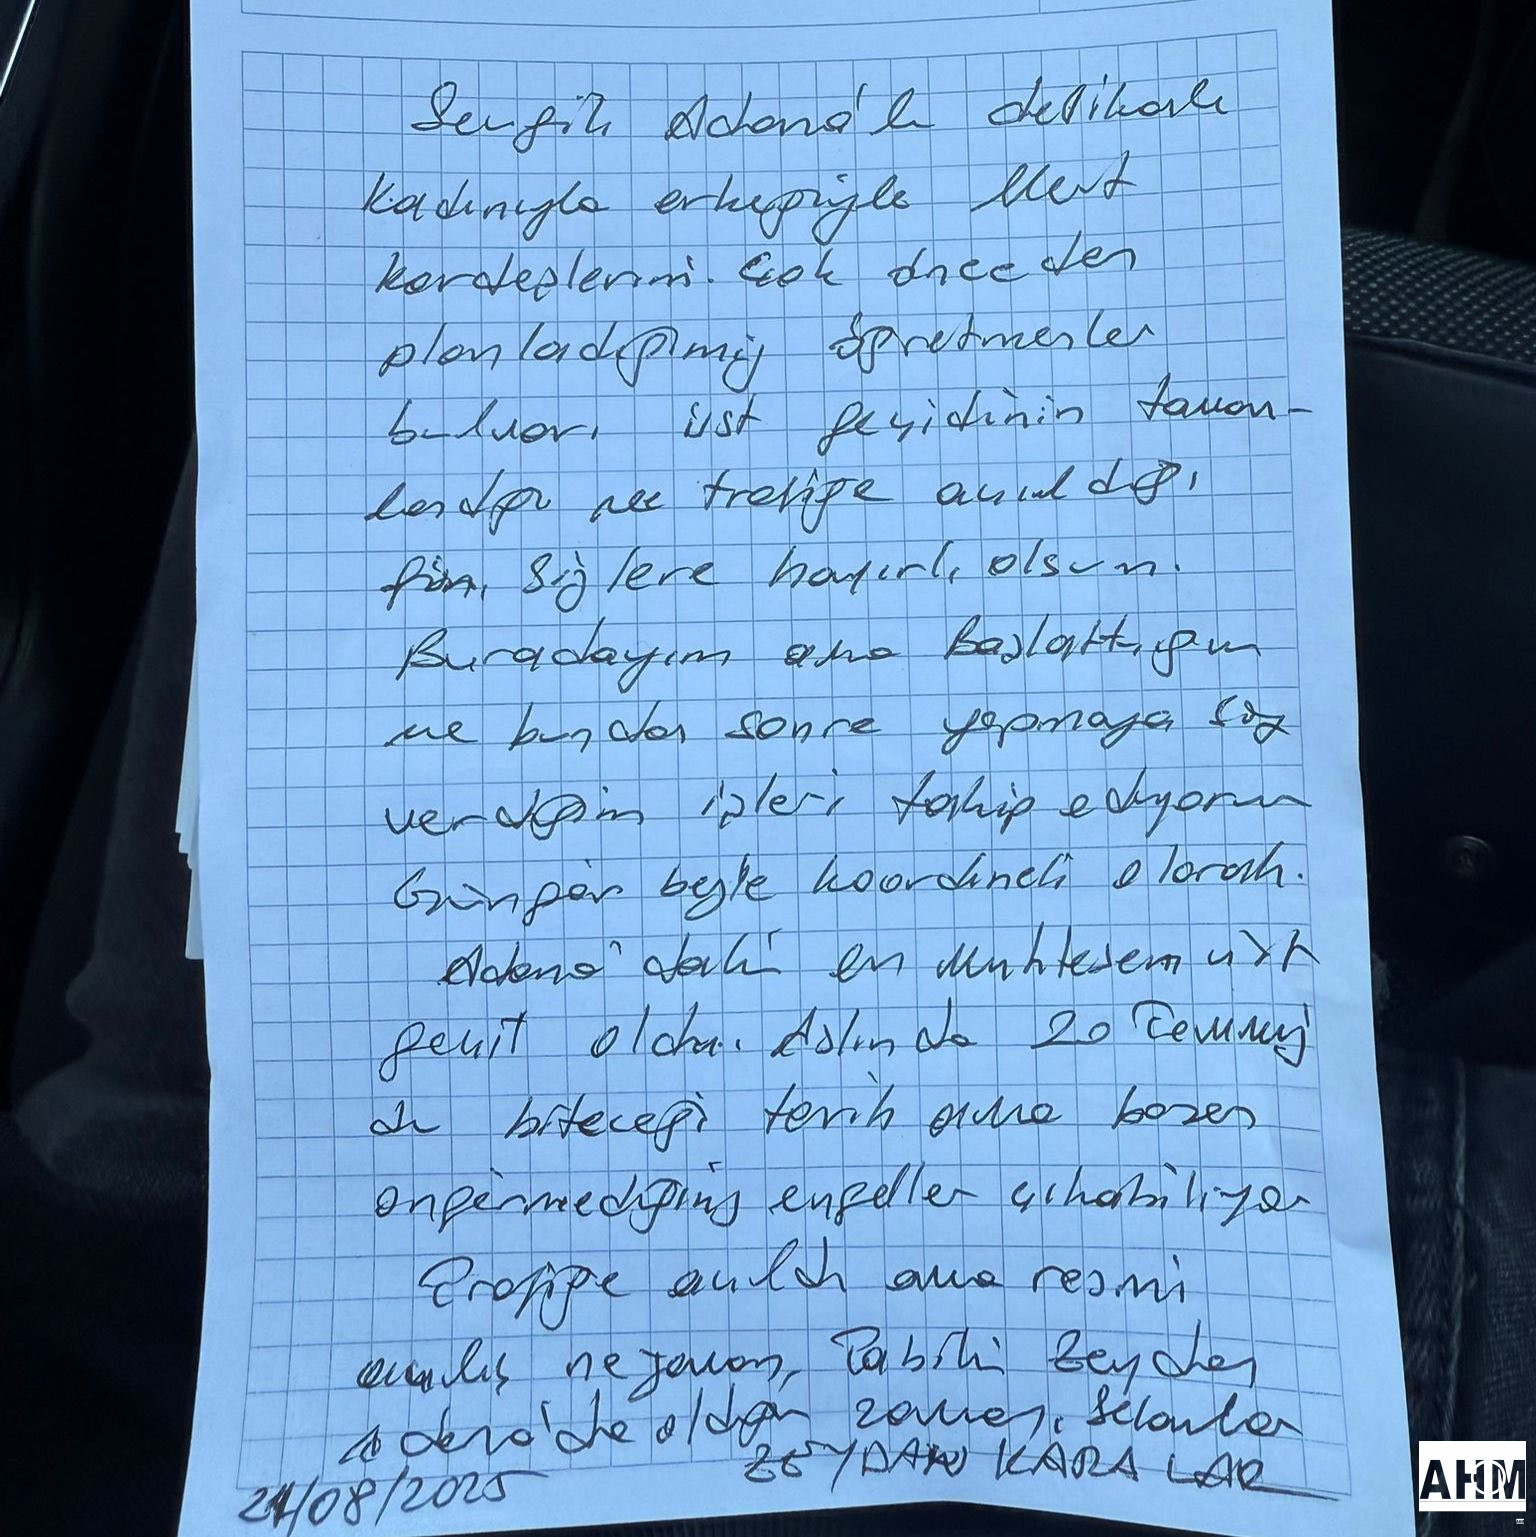 Sevgili Adana'lı delikanlı
Kadınıyla erkeğiyle Mert
kardeşlerim. Çok önceden
planladığımız öğretmenler
bulvarı üst geçidinin tamam-
landığı ve trafiğe açıldığı
gün. Sizlere hayırlı olsun.
Buradayım ama Başlattığım
ve bundan sonra yapmaya söz
verdiğim işleri takip ediyorum
Güngör beyle koordineli olarak.
Adana'daki en Muhteşem üst
geçit oldu. Aslında 20 Temmuz
du biteceği tarih ama bazen
öngörmediğiniz engeller çıkabiliyor
Trafiğe açıldı ama resmi
açılış ne zaman, Tabiki Zeydan
Adana'da olduğu zaman. Selamlar
ZEYDAN KARALAR
21/08/2025
AHM